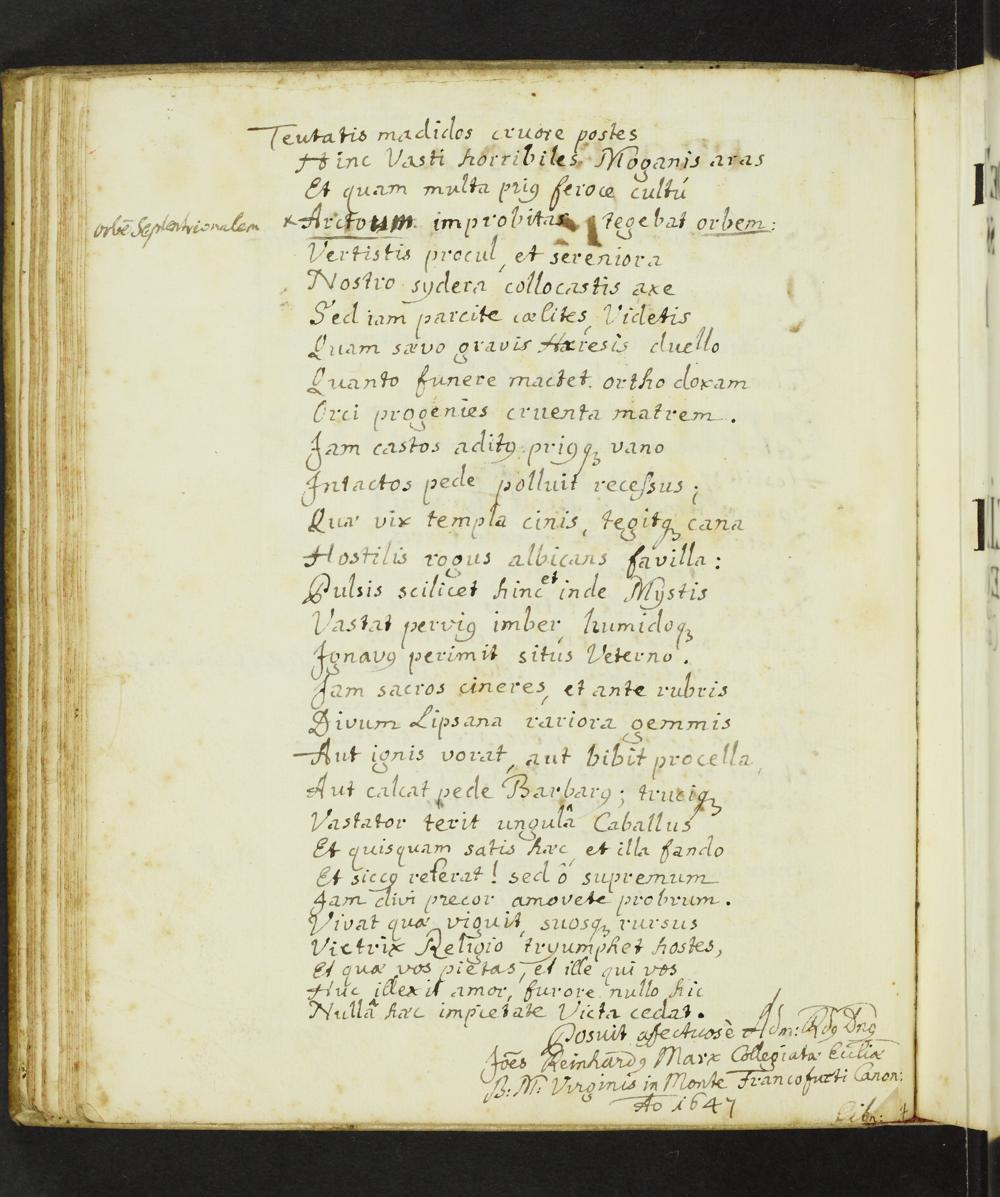 Teutatis madidos cruore postes
Hinc Vasti horribiles Moganis aras
Et quam multa priꝰ feroce cultú
orbē Septentrionalem × Arctoum improbitas tegebat orbem:
Vertistis procul, et sereniora
Nostro sydera collocastis axe
Sed iam parcite cœlites, Videtis
Quam sævo gravis Hæresis duello
Quanto funere mactet orthodoxam
Orci progenies cruenta matrem.
Jam castos aditꝰ priꝰqꝫ vano
Intactos pede polluit recessus;
Quæ vix templa cinis, tegitqꝫ cana
Hostilis rogus albicans favilla:
Pulsis scilicet hinc et inde Mystis
Vastat perviꝰ imber, humidoqꝫ
Ignavꝰ perimit sitús Veterno.
Jam sacros cineres, et ante rubris
Divum Lipsana rariora gemmis
Aut ignis vorat, aut bibit procella,
Aut calcat pede Barbarꝰ; truciqꝫ
Vastator terit ungulâ Caballus
Et quisquam satis hæc, et illa fando
Et siccꝰ referat! sed ô supremum
Jam divi precor amovete probrum.
Vivat quæ viguit, suosqꝫ rursus
Victrix Religio tryumphet hostes,
Et quæ vos pietas, et ille qui vos
Huc illexit amor, furore nullo hic
Nullâ hæc impietate Victa cedat.
Posuit affectuosè Adm: Rdꝰ Dnꝰ
Joēs Reinhardꝰ Marx Collegiatæ Eccliæ
B: M: Virginis in Monte Francofurti Canon:
Ao 1647